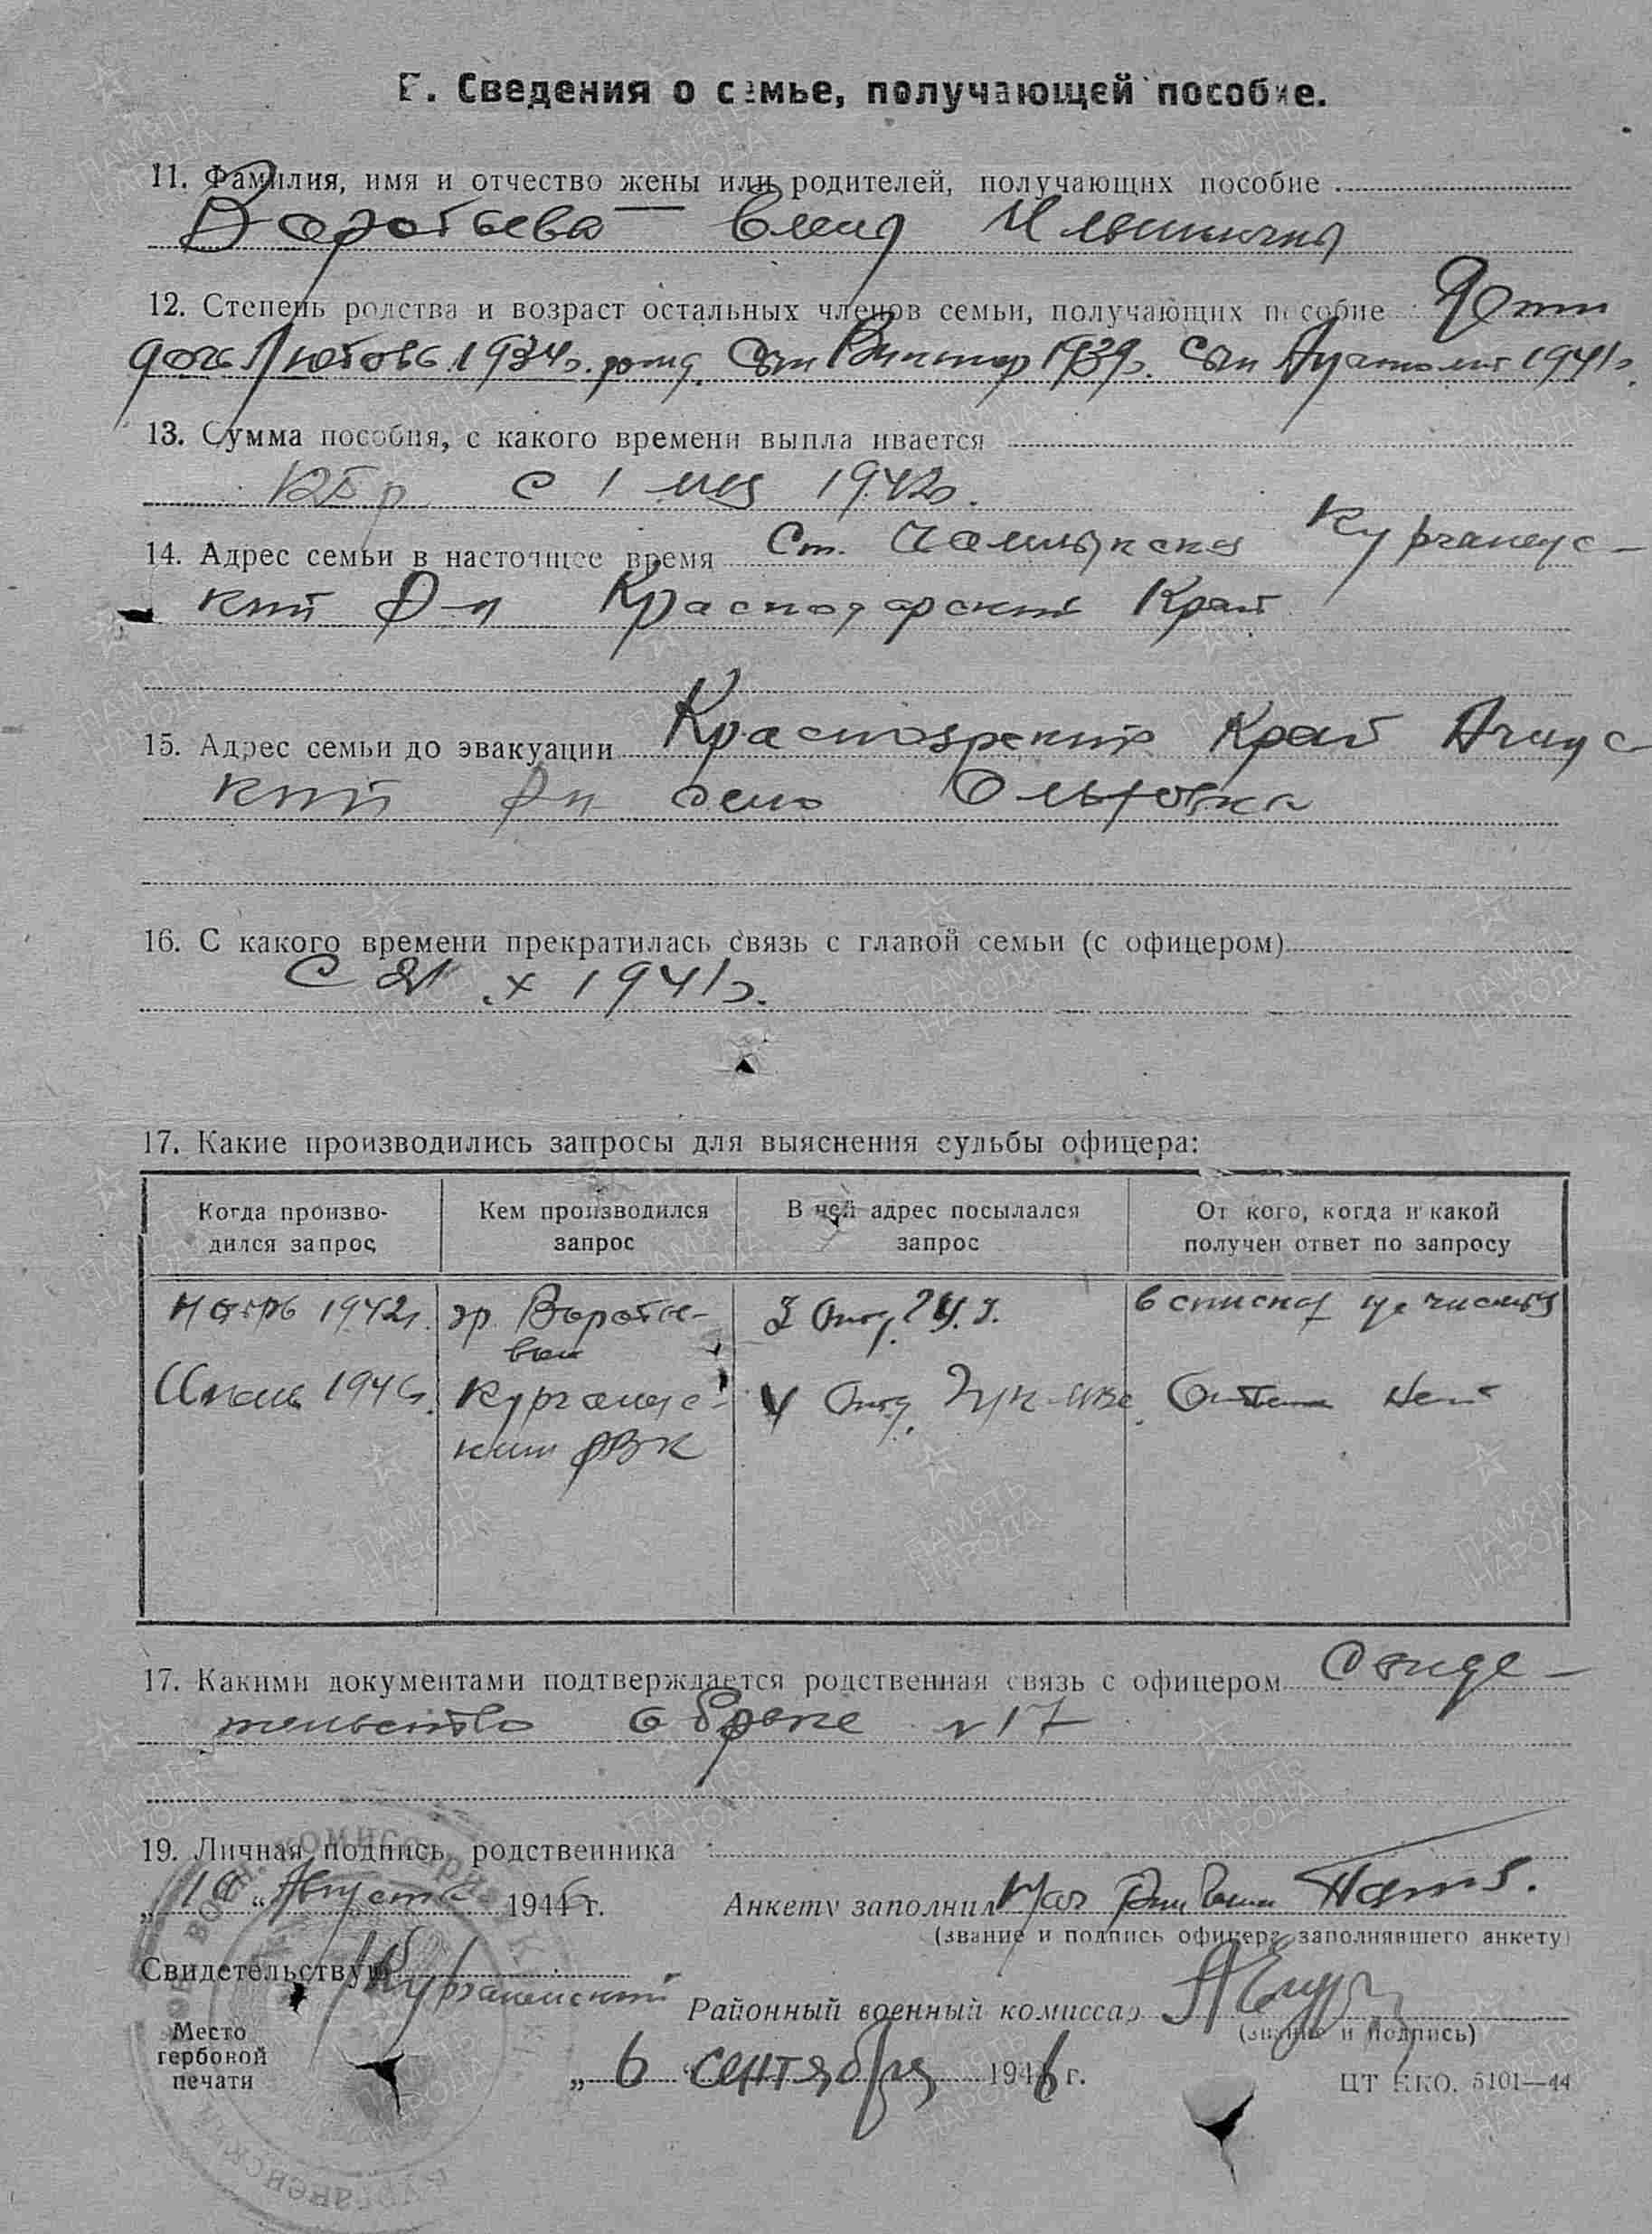 Г. Сведения о семье, получающей пособие.
11. Фамилия, имя и отчество жены или родителей, получающих пособие
Воробьева Ильинична
12. Степень родства и возраст остальных членов семьи, получающих пособие Дети
дочь Любовь 1934г. рожд. Сын Виктор 1939г. Сын Анатолий 1941г.
13. Сумма пособия, с какого времени выплачивается
с 1 мая 1942г.
14. Адрес семьи в настоящее время Ст. Чамлыкская Курганенс-
кий р-н Краснодарский Край
15. Адрес семьи до эвакуации Край
кий р-н село Ольховка
16. С какого времени прекратилась связь с главой семьи (с офицером)
С 21.X 1941г.
17. Какие производились запросы для выяснения судьбы офицера:
Когда произво-
дился запрос
Кем производился
запрос
В чей адрес посылался
запрос
От кого, когда и какой
получен ответ по запросу
Ноябрь 1942г. гр. Воробье-
вой
в списках не числится
1946г. Курганенс-
кий РВК
Ответа нет
17. Какими документами подтверждается родственная связь с офицером Свиде-
тельство о браке №17
19. Личная подпись родственника
„10“ Августа 1946 г. Анкету заполнил
(звание и подпись офицера, заполнявшего анкету)
Свидетельствую: Курганенский Районный военный комиссар
(звание и подпись)
Место
гербовой
печати
„6“ сентября 1946 г.
ЦТ НКО. 5101—44